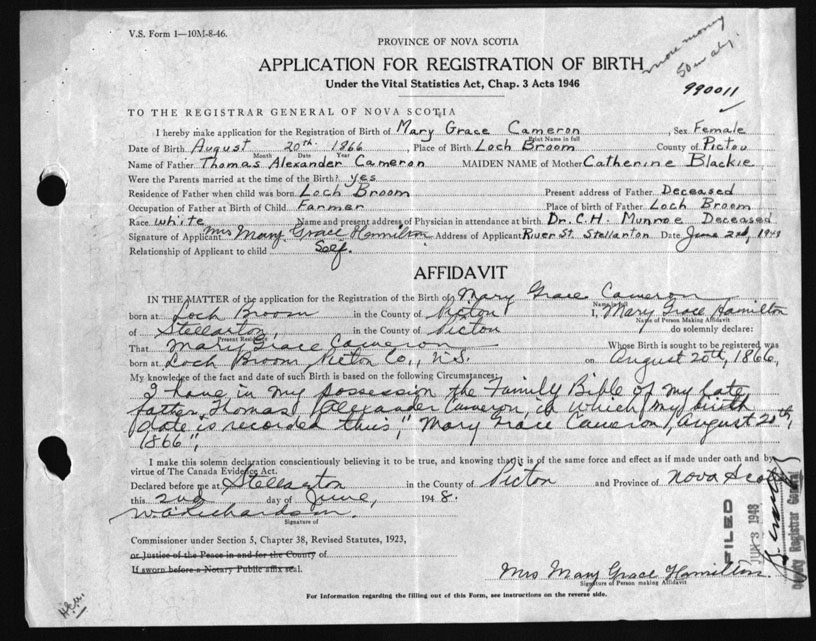 V.S. Form 1—10M-8-46.
PROVINCE OF NOVA SCOTIA
more money
APPLICATION FOR REGISTRATION OF BIRTH
Under the Vital Statistics Act, Chap. 3 Acts 1946
990011
TO THE REGISTRAR GENERAL OF NOVA SCOTIA
I hereby make application for the Registration of Birth of Mary Grace Cameron, Sex Female
Print Name in full
Date of Birth August 20th 1866, Place of Birth Loch Broom County of Pictou
Month Date Year
Name of Father Thomas Alexander Cameron MAIDEN NAME of Mother Catherine Blackie
Were the Parents married at the time of the Birth? yes
Residence of Father when child was born Loch Broom Present address of Father Deceased
Occupation of Father at Birth of Child Farmer Place of birth of Father Loch Broom
Race white Name and present address of Physician in attendance at birth Dr. C.H. Munroe Deceased
Signature of Applicant Mrs Mary Grace Hamilton Address of Applicant River St. Stellarton Date June 2nd, 1948
Relationship of Applicant to child Self.
AFFIDAVIT
IN THE MATTER of the application for the Registration of the Birth of Mary Grace Cameron
Name in full
born at Loch Broom in the County of Pictou I, Mary Grace Hamilton
Name of Person Making Affidavit
of Stellarton, in the County of Pictou do solemnly declare:
Present Residence
That Mary Grace Cameron Whose Birth is sought to be registered was
born at Loch Broom Pictou Co., N.S. on August 20th, 1866,
My knowledge of the fact and date of such Birth is based on the following Circumstances:
I have in my possession the Family Bible of my late
father, Thomas Alexander Cameron, in which my birth
date is recorded thus, "Mary Grace Cameron, August 20th,
1866",
I make this solemn declaration conscientiously believing it to be true, and knowing that it is of the same force and effect as if made under oath and by
virtue of The Canada Evidence Act.
Declared before me at Stellarton in the County of Pictou and Province of Nova Scotia
this 2nd day of June, 1948.
W.A. Richardson.
Signature of
Commissioner under Section 5, Chapter 38, Revised Statutes, 1923,
or Justice of the Peace in and for the County of
If sworn before a Notary Public affix seal.
FILED
JUN 3 1948
Deputy Registrar General
Mrs Mary Grace Hamilton
Signature of Person making Affidavit
For Information regarding the filling out of this Form, see instructions on the reverse side.